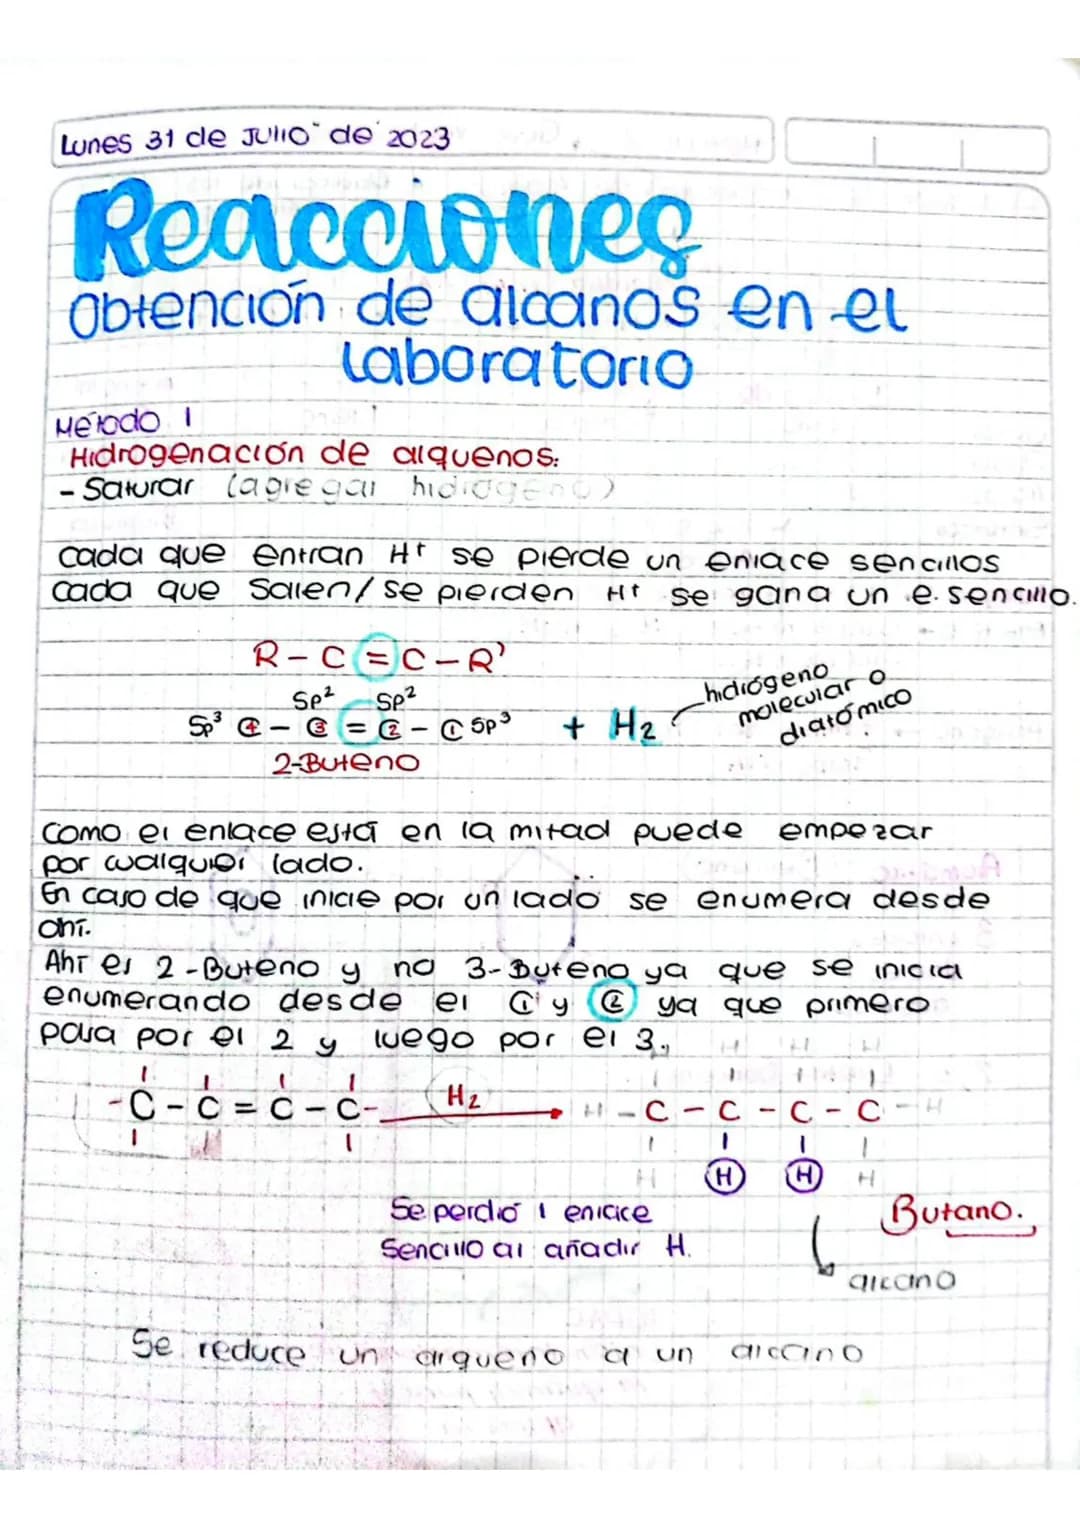 Lunes 31 de Julio de 2023
Reacciones
Obtención de alcanos en el
Laboratorio
Método 1
Hidrogenación de alquenos:
- Saturar (agregar hidrógeno)
Cada que entran H+ se pierde un enlace sencillos
Cada que Salen/se pierden H+ se gana un e. sencillo.
R - C = C - R'
Sp² Sp²
Sp³ C4 - C3 = C2 - C1 Sp³ + H₂ hidrógeno molecular o diatómico
2-Buteno
Como el enlace está en la mitad puede empezar
por cualquier lado.
En caso de que inicie por un lado se enumera desde
ahí.
Ahí es 2-Buteno y no 3-Buteno ya que se inicia
enumerando desde el C1 y C2 ya que primero
pasa por el 2 y luego por el 3.
H H H
-C - C = C - C- H₂ H - C - C - C - C - H
H H H H
Se perdió 1 enlace Butano.
Sencillo al añadir H.
alcano
Se reduce un alqueno a un alcano